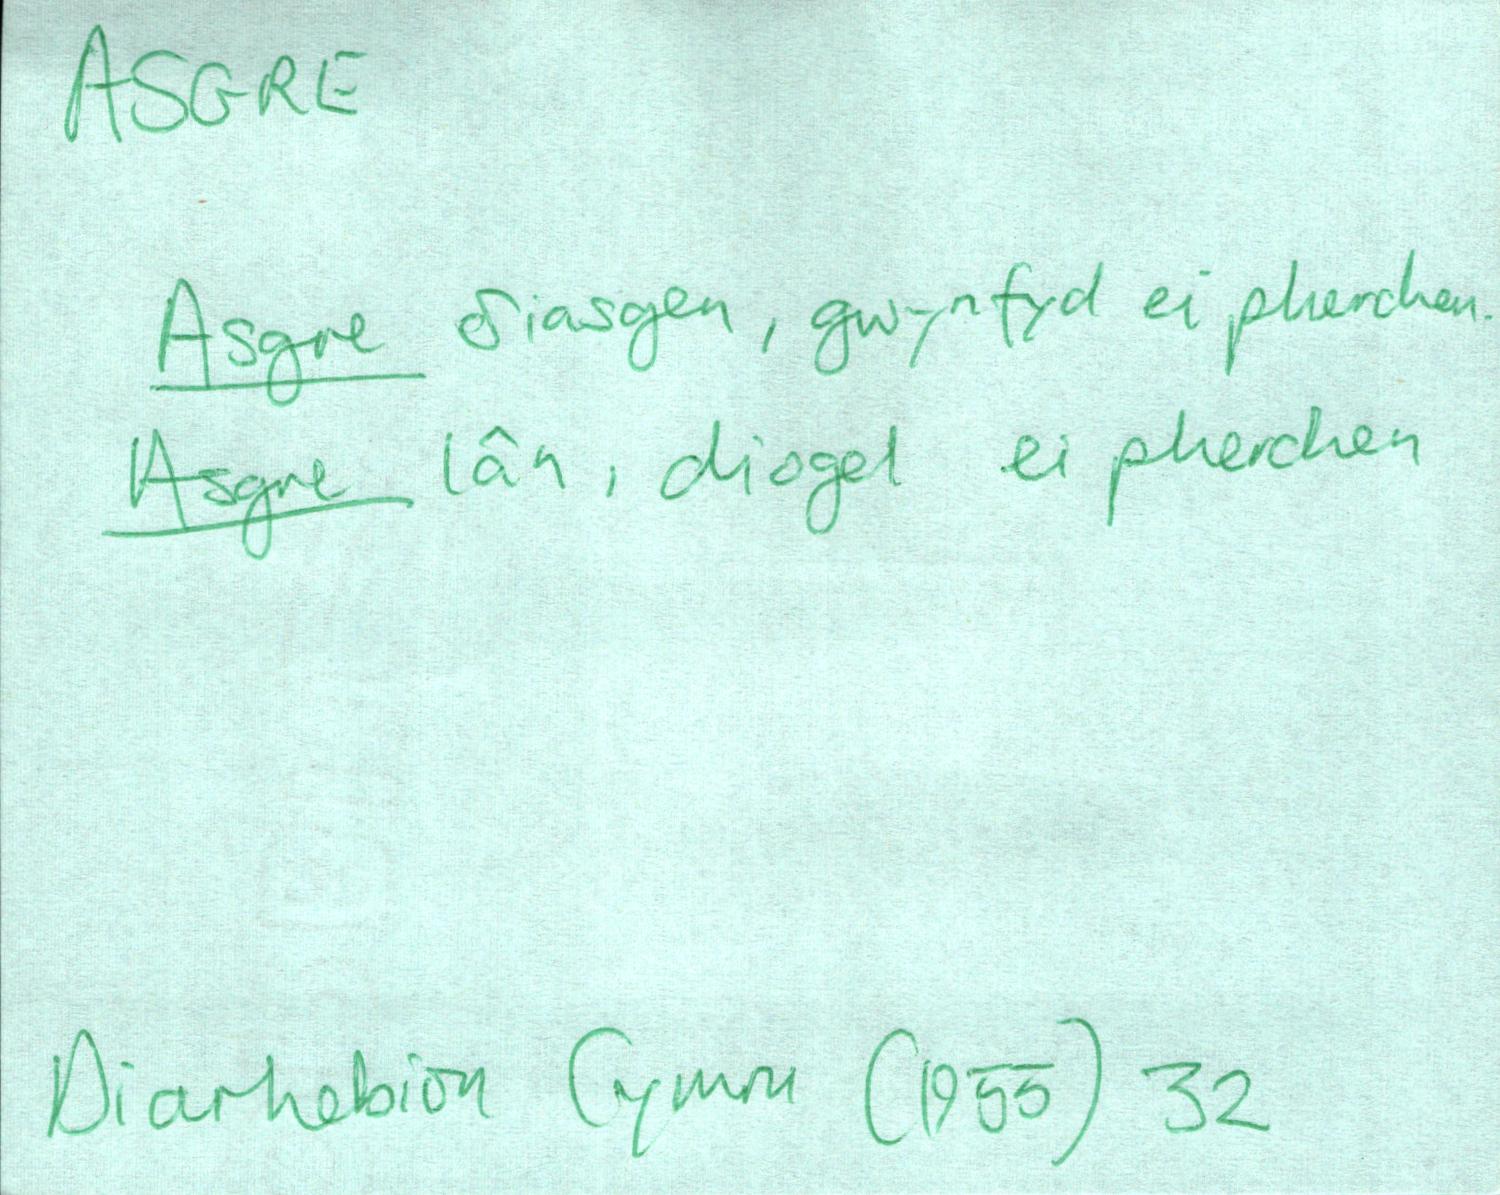 ASGRE
Asgre δiasgen, gwynfyd ei pherchen.
Asgre lân, diogel ei pherchen
Diarhebion Cymru (1955) 32